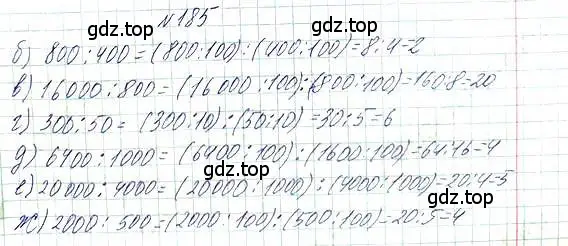 №185
б) 800:400=(800:100):(400:100)=8:4=2
в) 16000:800=(16000:100):(800:100)=160:8=20
г) 300:50=(300:10):(50:10)=30:5=6
д) 6400:1000=(6400:100):(1600:100)=64:16=4
е) 20000:4000=(20000:1000):(4000:1000)=20:4=5
ж) 2000:500=(2000:100):(500:100)=20:5=4
gdz.top
gdz.top
gdz.top
gdz.top
gdz.top
gdz.top